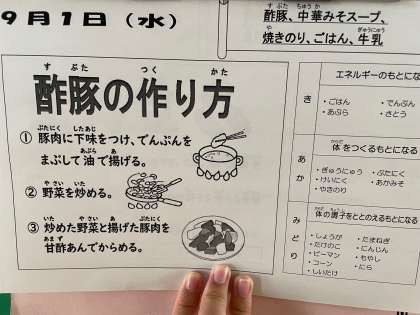 9月1日（水）
酢豚、中華みそスープ、
焼きのり、ごはん、牛乳
酢豚の作り方
① 豚肉に下味をつけ、でんぷんを
まぶして油で揚げる。
② 野菜を炒める。
③ 炒めた野菜と揚げた豚肉を
甘酢あんでからめる。
エネルギーのもとになる
き
・ごはん ・でんぷん
・あぶら ・さとう
体をつくるもとになる
あか
・ぎゅうにゅう ・ぶたにく
・けいにく ・あかみそ
・やきのり
体の調子をととのえるもとになる
みどり
・しょうが ・たまねぎ
・たけのこ ・にんじん
・ピーマン ・もやし
・コーン ・にら
・しいたけ